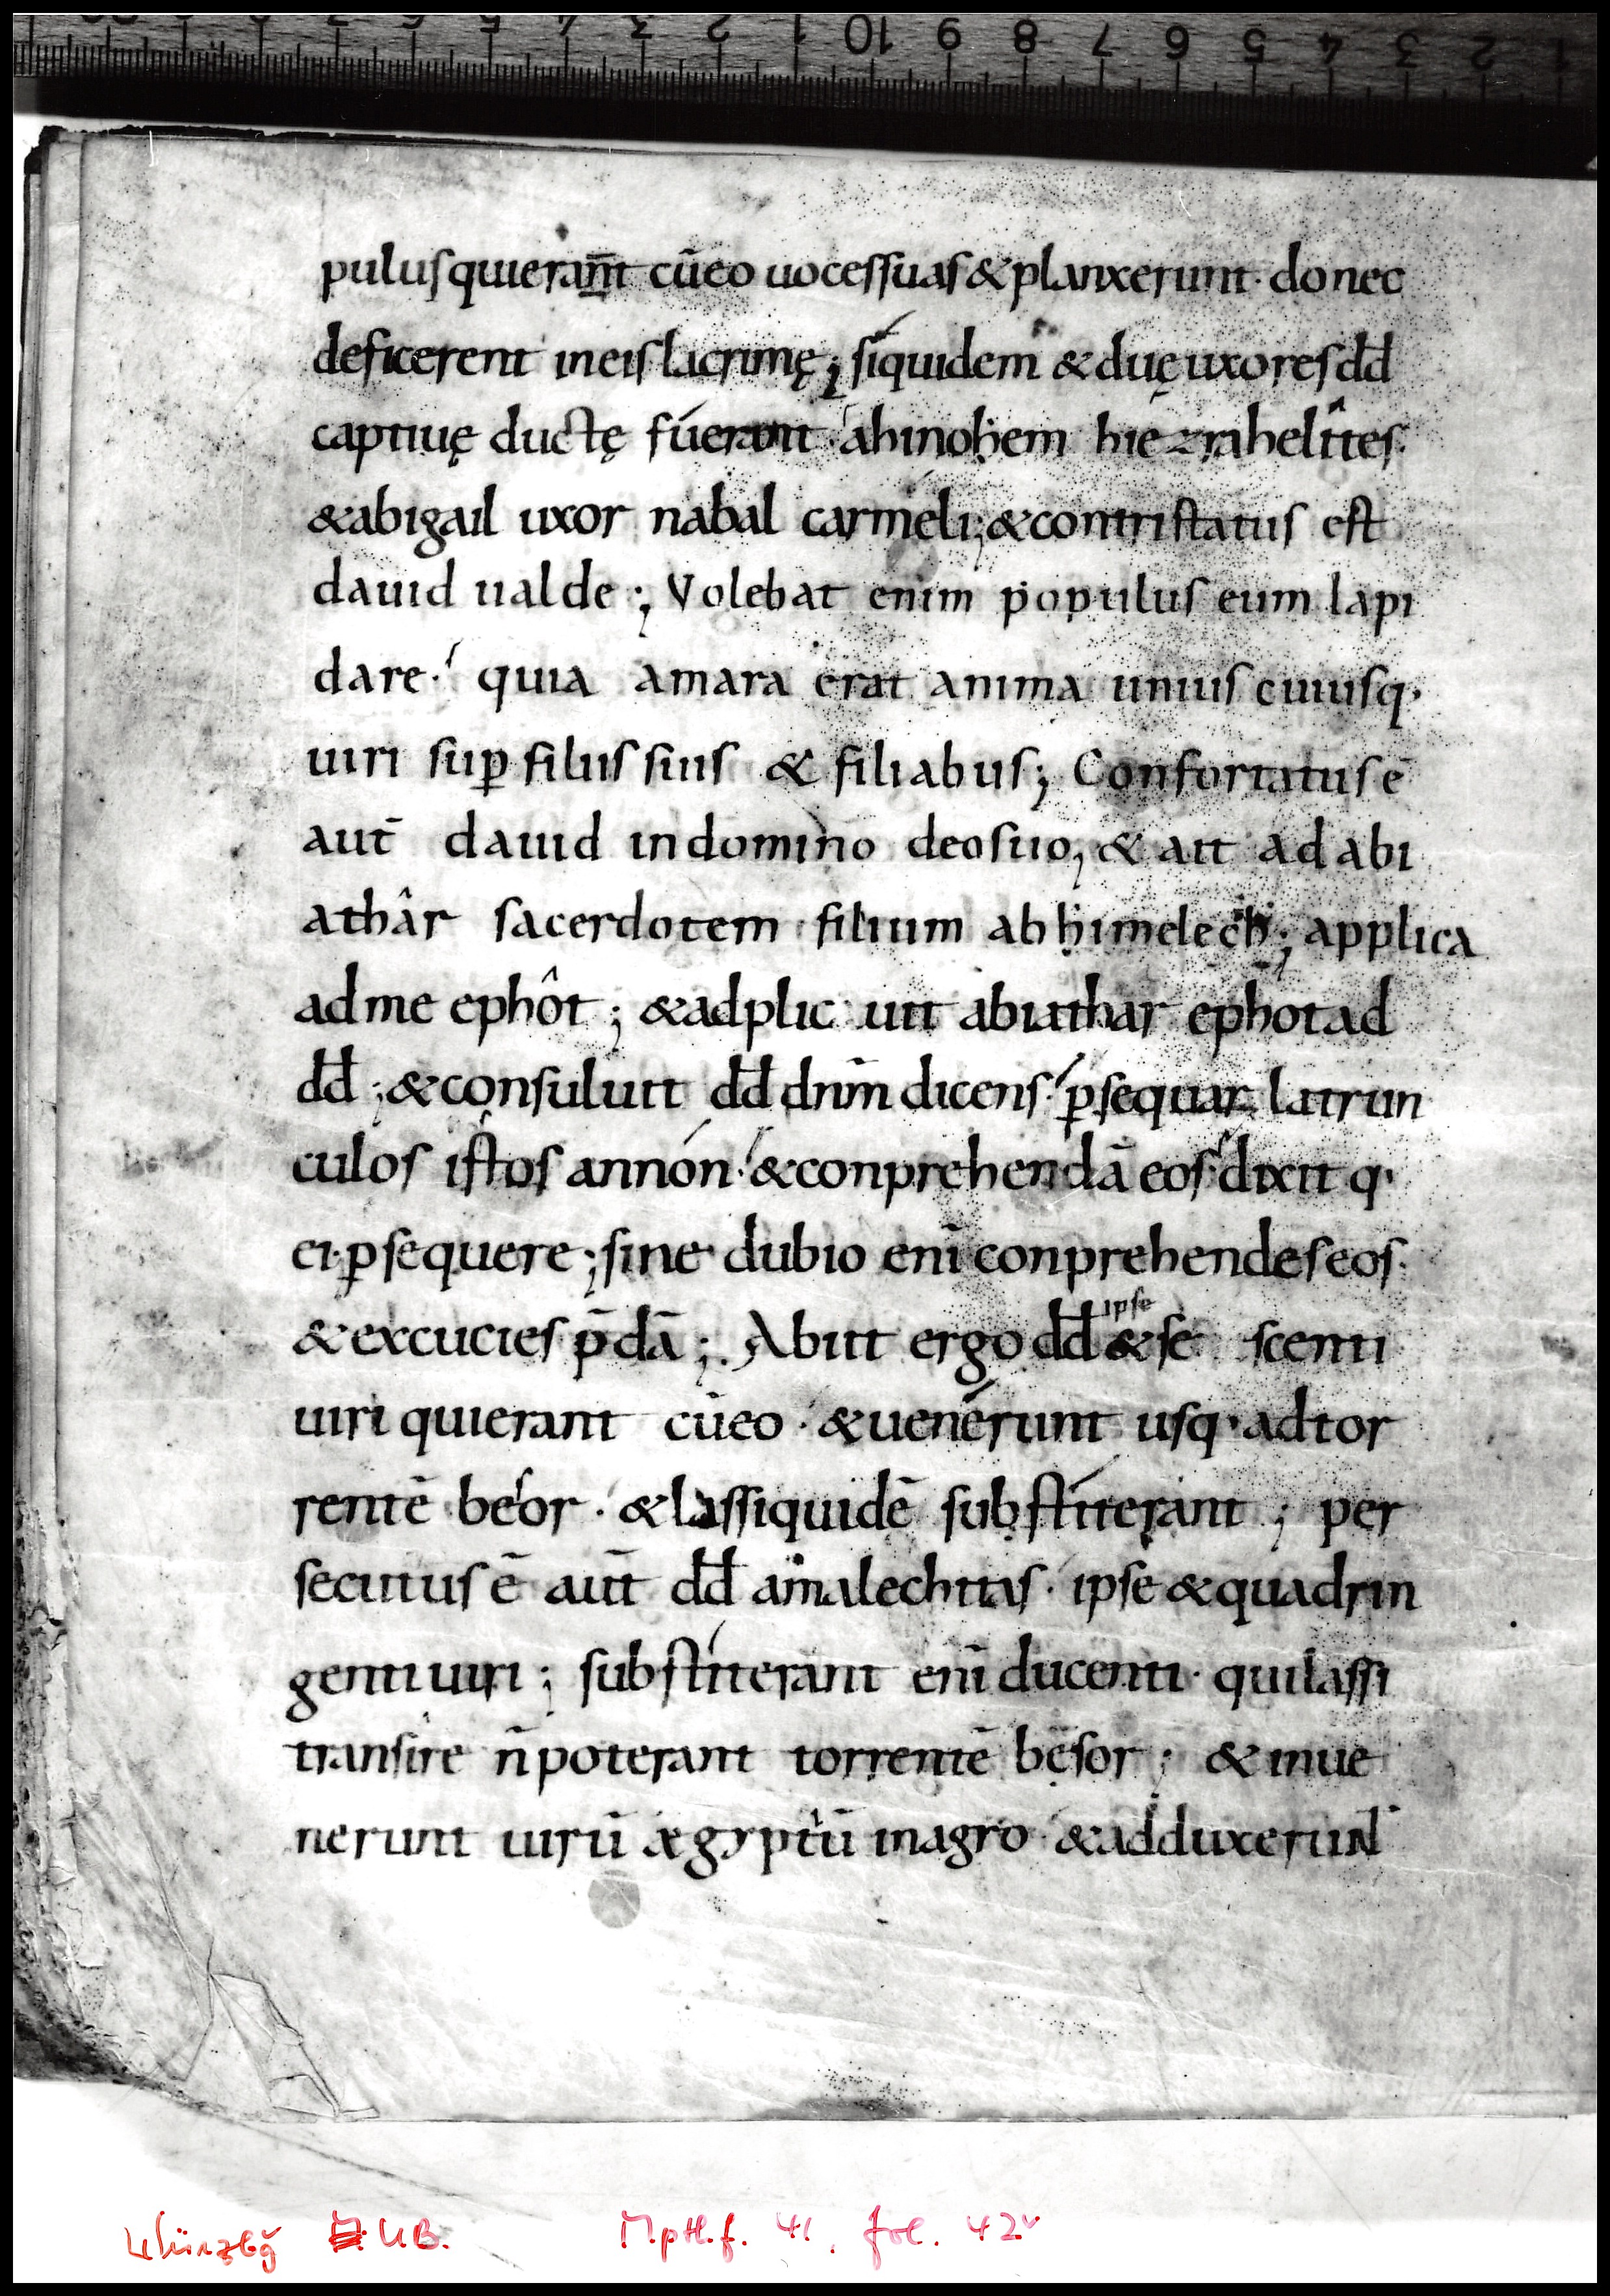 pulus qui eram̅t cū eo uoces suas & planxerunt· donec
deficerent in eis lacrimę; síquidem & duę uxores dd̅
captiuę ductę fúerant· ahinoḥem hiezrahelîtes·
& abigail uxor nabal carméli; & contristatus est
dauid ualde; Volebat enim populus eum lapi
dare· quia amara erat anima unius cuiusq·
uiri suꝑ filiis suis & filiabus; Confortatus ē
aut̄ dauid in domino deo suo, & ait ad abi
athâr sacerdotem filium abḥimelech; applica
ad me ephôt; & adplic uit abiathar ephot ad
dd̅; & consuluit dd̅ dnm̄ dicens· ꝑsequar latrun
culos istos annón· & conprehendā eos· dixit q·
ei· ꝑsequere; sine dubio eni̅ conprehendes eos·
& excucies p̄dā; Abiit ergo dd̅ & ipse se scenti
uiri qui erant cū eo· & uenérunt usq· ad tor
rentē besor· & lassi quidē substíterant; per
secutus ē aut̄ dd̅ amalechitas· ipse & quadrin
genti uiri; substíterant eni̅ ducenti· qui lassi
transire n̄ poterant torrentē besor; & inue
nerunt uirū ægyptiū in agro· & adduxerunt
Würzbg UB. M.p.th.f. 41, fol. 42v
10 9 8 7 6 5 4 3 2 1